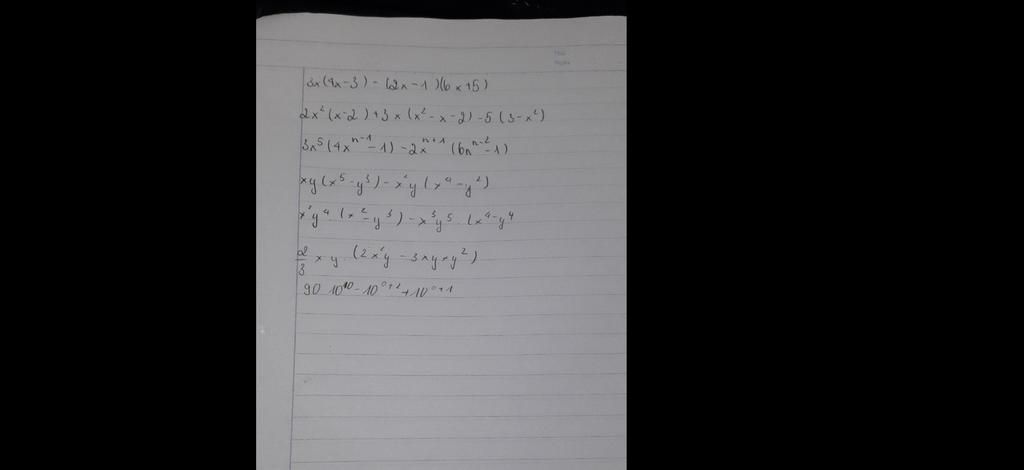 3x(4x-3)-(2x-1)(6x+5)
2x²(x-2)+3x(x²-x-2)-5(3-x²)
3x⁵(4xⁿ⁻¹-1)-2xⁿ⁺¹(6xⁿ⁻²-1)
xy(x⁵-y³)-x²y(x⁴-y²)
x²y⁴(x²-y³)-x³y⁵(x⁴-y⁴
2/3 xy (2x²y-3xy+y²)
90 10¹⁰-10⁰⁺²+10⁰⁺¹